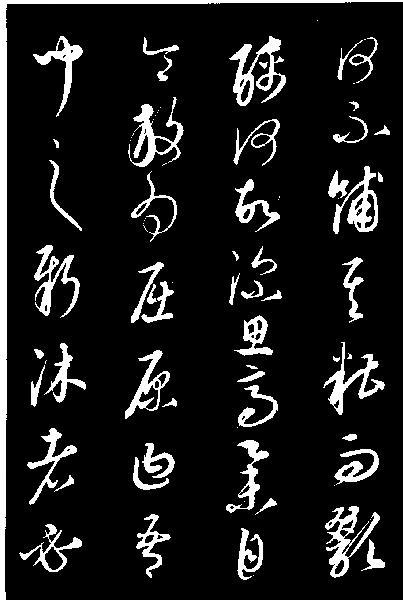 何不餔其糟而歠
醨何故深思高舉自
令放為屈原曰吾
聞之新沐者必